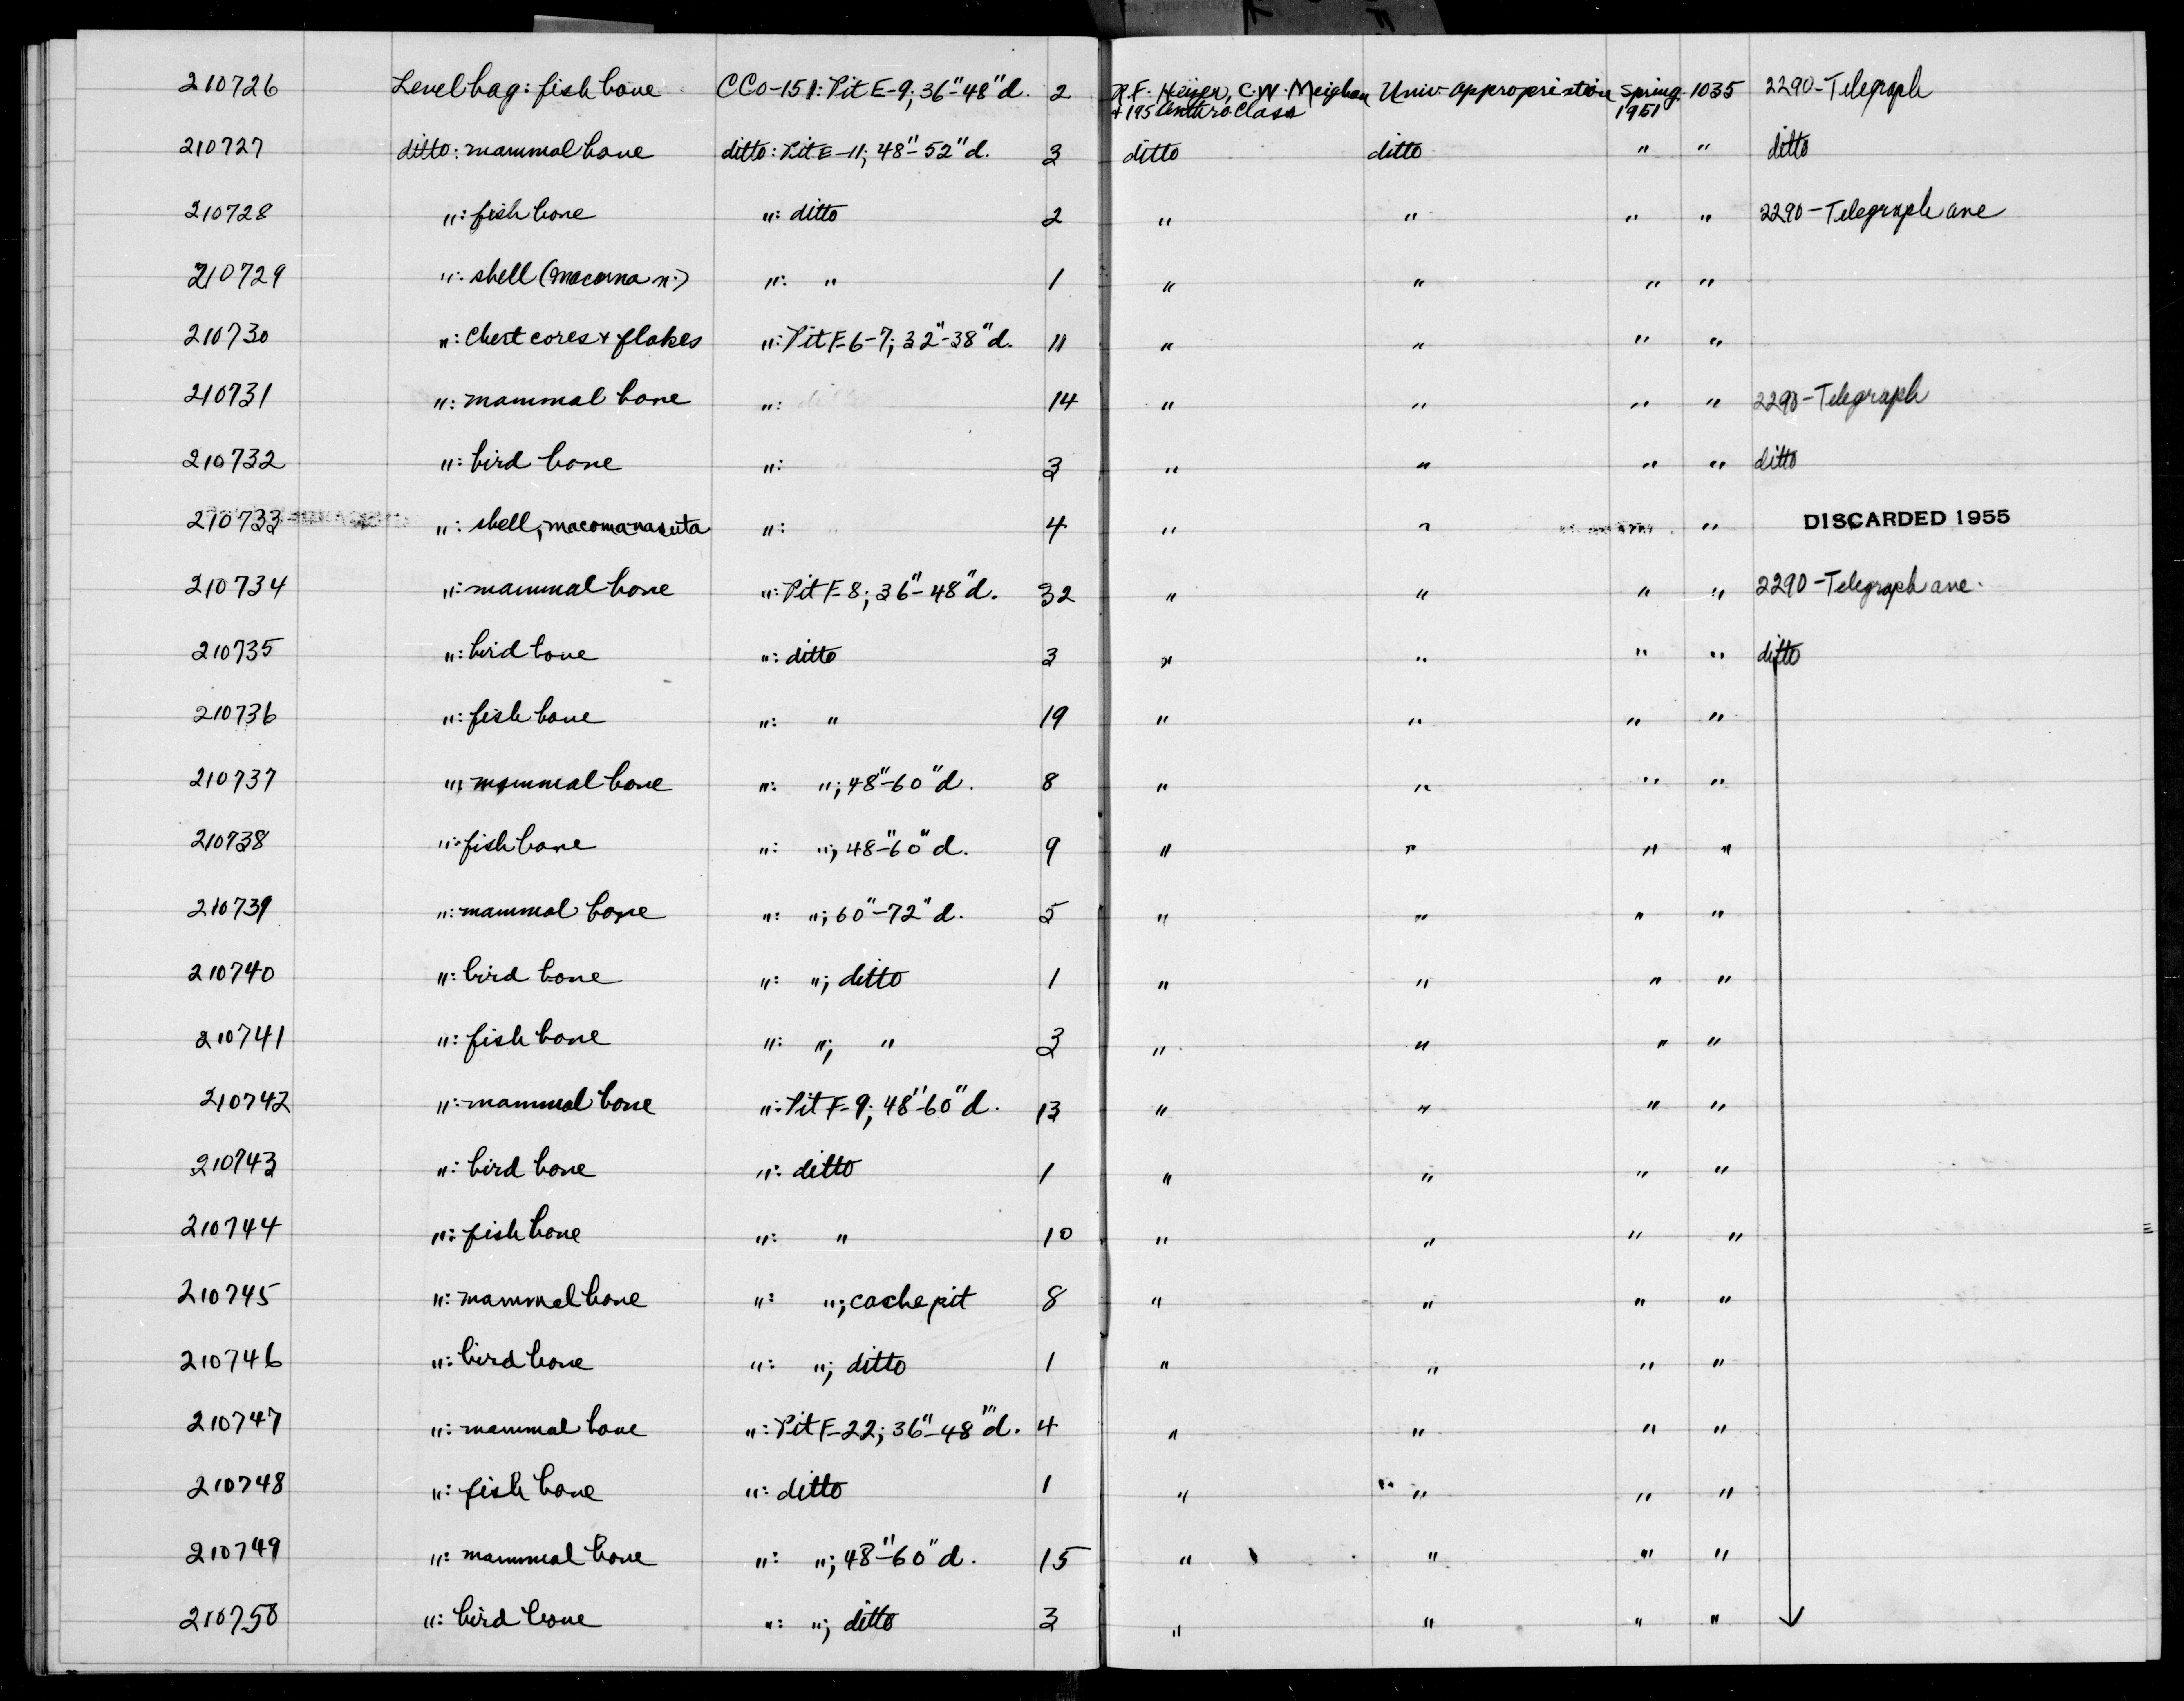 210726 Level bag: fish bone CCo-151: Pit E-9; 36"-48"d. 2 R.F. Heizer, C.W. Meighan Univ. appropriation Spring 1035 2290-Telegraph
+ 195 Anthro. Class 1951
210727 ditto: mammal bone ditto: Pit E-11; 48"-52"d. 3 ditto ditto " " ditto
210728 ": fish bone ": ditto 2 " " " " 2290-Telegraph ave
210729 ": shell (macoma n.) ": " 1 " " " "
210730 ": Chert cores + flakes ": Pit F-6-7; 32"-38"d. 11 " " " "
210731 ": mammal bone ": ditto 14 " " " " 2290-Telegraph
210732 ": bird bone ": " 3 " " " " ditto
210733 ": shell; macoma nasuta ": " 4 " " " DISCARDED 1955
210734 ": mammal bone ": Pit F-8; 36"-48"d. 32 " " " " 2290-Telegraph ave.
210735 ": bird bone ": ditto 3 " " " " ditto
210736 ": fish bone ": " 19 " " " "
210737 ": mammal bone ": "; 48"-60"d. 8 " " " "
210738 ": fish bone ": "; 48"-60"d. 9 " " " "
210739 ": mammal bone ": "; 60"-72"d. 5 " " " "
210740 ": bird bone ": "; ditto 1 " " " "
210741 ": fish bone ": "; " 3 " " " "
210742 ": mammal bone ": Pit F-9; 48"-60"d. 13 " " " "
210743 ": bird bone ": ditto 1 " " " "
210744 ": fish bone ": " 10 " " " "
210745 ": mammal bone ": "; cache pit 8 " " " "
210746 ": bird bone ": "; ditto 1 " " " "
210747 ": mammal bone ": Pit F-22; 36"-48"d. 4 " " " "
210748 ": fish bone ": ditto 1 " " " "
210749 ": mammal bone ": "; 48"-60"d. 15 " " " "
210750 ": bird bone ": "; ditto 3 " " " "